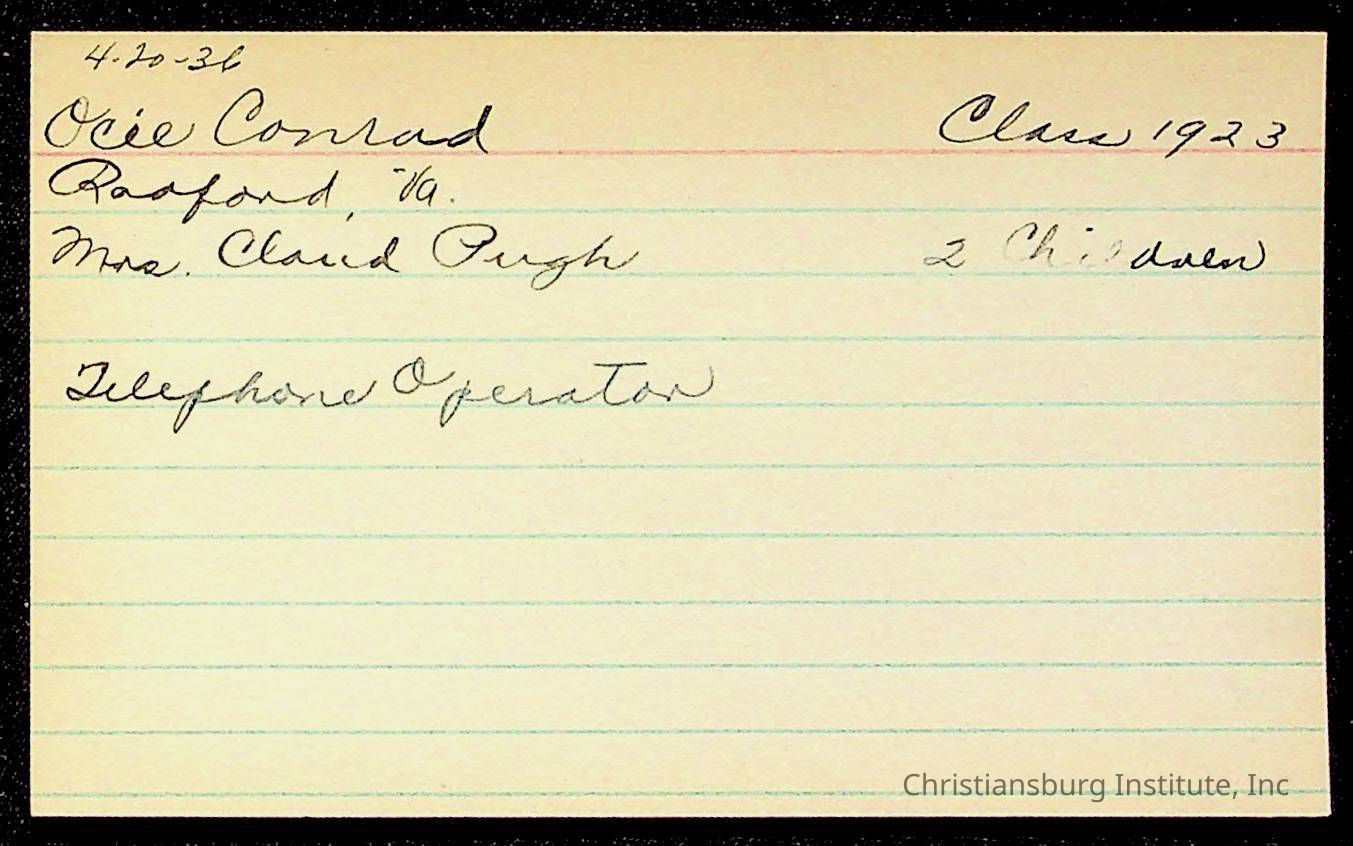 4-20-36
Ocie Conrad Class 1923
Radford, Va.
Mrs. Claud Pugh 2 Children
Telephone Operator
Christiansburg Institute, Inc